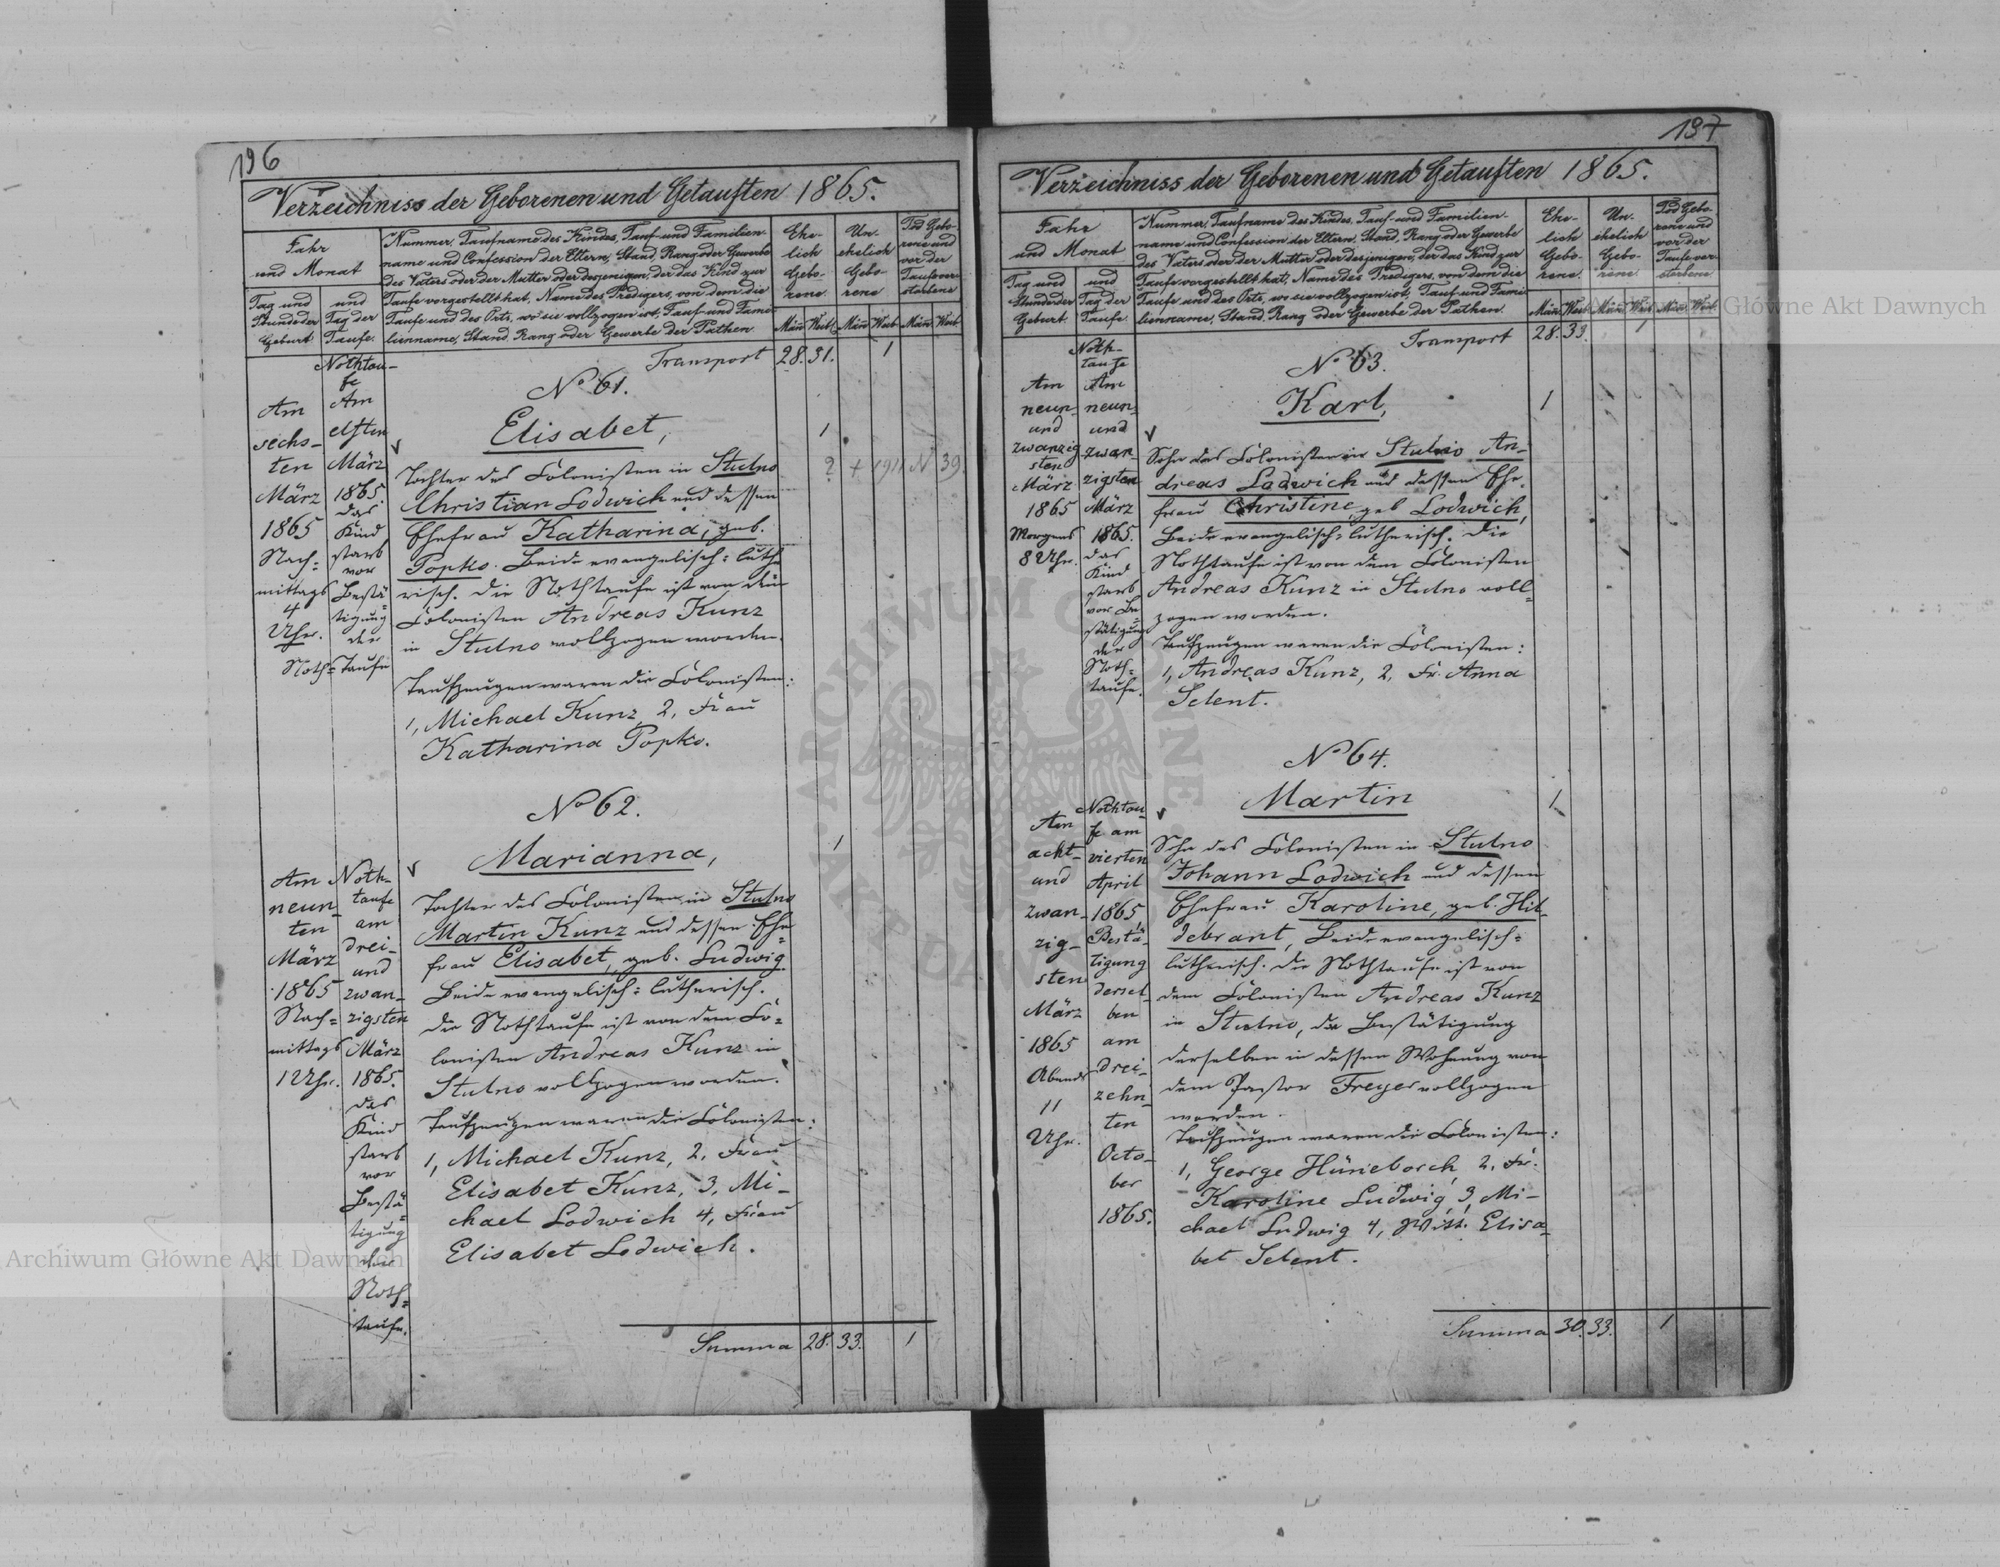 196
Verzeichniss der Geborenen und Getauften 1865.
Jahr
und Monat
Tag und
Stunde der
Geburt
und
Tag der
Taufe.
Nummer, Taufname des Kindes, Tauf- und Familien-
name und Confession der Eltern, Stand, Rang oder Gewerbe
des Vaters oder der Mutter oder desjenigen, der das Kind zur
Taufe vorgestellt hat, Name des Predigers, von dem die
Taufe und des Orts, wo sie vollzogen ist, Tauf- und Fami-
lienname, Stand, Rang oder Gewerbe der Pathen
Ehe-
lich
Gebo-
rene.
Un-
ehelich
Gebo-
rene
Tod Gebo-
rene und
vor der
Taufe ver-
storbene
Män. Weib. Män. Weib. Män. Weib.
Transport 28. 31. 1
No 61.
Elisabet,
1
Am
sechs-
ten
März
1865
Nach-
mittags
4
Uhr.
Nothtau-
fe
Am
elften
März
1865.
das
Kind
starb
vor
Bestä-
tigung
der
Noth-Taufe
Tochter des Colonisten in Stulno
Christian Lodwich und dessen
Ehefrau Katharina, geb.
Popko. Beide evangelisch-luthe
risch. Die Nothtaufe ist von dem
Colonisten Andreas Kunz
in Stulno vollzogen worden.
Taufzeugen waren die Colonisten:
1, Michael Kunz, 2, Frau
Katharina Popko.
? + 1911 N 39
No 62.
Marianna,
1
Am
neun-
ten
März
1865
Nach-
mittags
1 Uhr.
Noth-
taufe
am
drei-
und
zwan-
zigsten
März
1865.
das
Kind
starb
vor
Bestä-
tigung
der
Noth-
taufe.
Tochter des Colonisten in Stulno
Martin Kunz und dessen Ehe-
frau Elisabet, geb. Ludwig
Beide evangelisch-lutherisch.
Die Nothtaufe ist von dem Co-
lonisten Andreas Kunz in
Stulno vollzogen worden.
Taufzeugen waren die Colonisten:
1, Michael Kunz, 2, Frau
Elisabet Kunz, 3, Mi-
chael Lodwich 4, Frau
Elisabet Lodwich.
Summa 28. 33. 1
197
Verzeichniss der Geborenen und Getauften 1865.
Jahr
und Monat
Tag und
Stunde der
Geburt
und
Tag der
Taufe.
Nummer, Taufname des Kindes, Tauf- und Familien-
name und Confession der Eltern, Stand, Rang oder Gewerbe
des Vaters oder der Mutter oder desjenigen, der das Kind zur
Taufe vorgestellt hat, Name des Predigers, von dem die
Taufe und des Orts, wo sie vollzogen ist, Tauf- und Fami-
lienname, Stand, Rang oder Gewerbe der Pathen.
Ehe-
lich
Gebo-
rene.
Un-
ehelich
Gebo-
rene
Tod Gebo-
rene und
vor der
Taufe ver-
storbene.
Män. Weib. Män. Weib. Män. Weib.
Transport 28. 33. 1
No 63.
Karl,
1
Am
neun-
und
zwanzig
sten
März
1865
Morgens
8 Uhr.
Noth-
taufe
Am
neun-
und
zwan-
zigsten
März
1865.
das
Kind
starb
vor Be-
stätigung
der
Noth-
taufe.
Sohn des Colonisten in Stulno An-
dreas Lodwich und dessen Ehe-
frau Christine, geb Lodwich,
Beide evangelisch-lutherisch. Die
Nothtaufe ist von dem Colonisten
Andreas Kunz in Stulno voll-
zogen worden.
Taufzeugen waren die Colonisten:
1, Andreas Kunz, 2, Fr. Anna
Selent.
No 64.
Martin
1
Am
acht-
und
zwan-
zig-
sten
März
1865
Abends
11
Uhr.
Nothtau-
fe am
vierten
April
1865,
Bestä-
tigung
dersel-
ben
am
drei-
zehn-
ten
Octo-
ber
1865.
Sohn des Colonisten in Stulno
Johann Lodwich und dessen
Ehefrau Karoline, geb. Hil-
debrant, Beide evangelisch-
lutherisch. Die Nothtaufe ist von
dem Colonisten Andreas Kunz
in Stulno, die Bestätigung
derselben in dessen Wohnung von
dem Pastor Freyer vollzogen
worden.
Taufzeugen waren die Colonisten:
1, George Hüneborch, 2, Fr.
Karoline Ludwig, 3, Mi-
chael Ludwig 4, Witt. Elisa-
bet Selent.
Summa 30. 33. 1
Archiwum Główne Akt Dawnych
Archiwum Główne Akt Dawnych